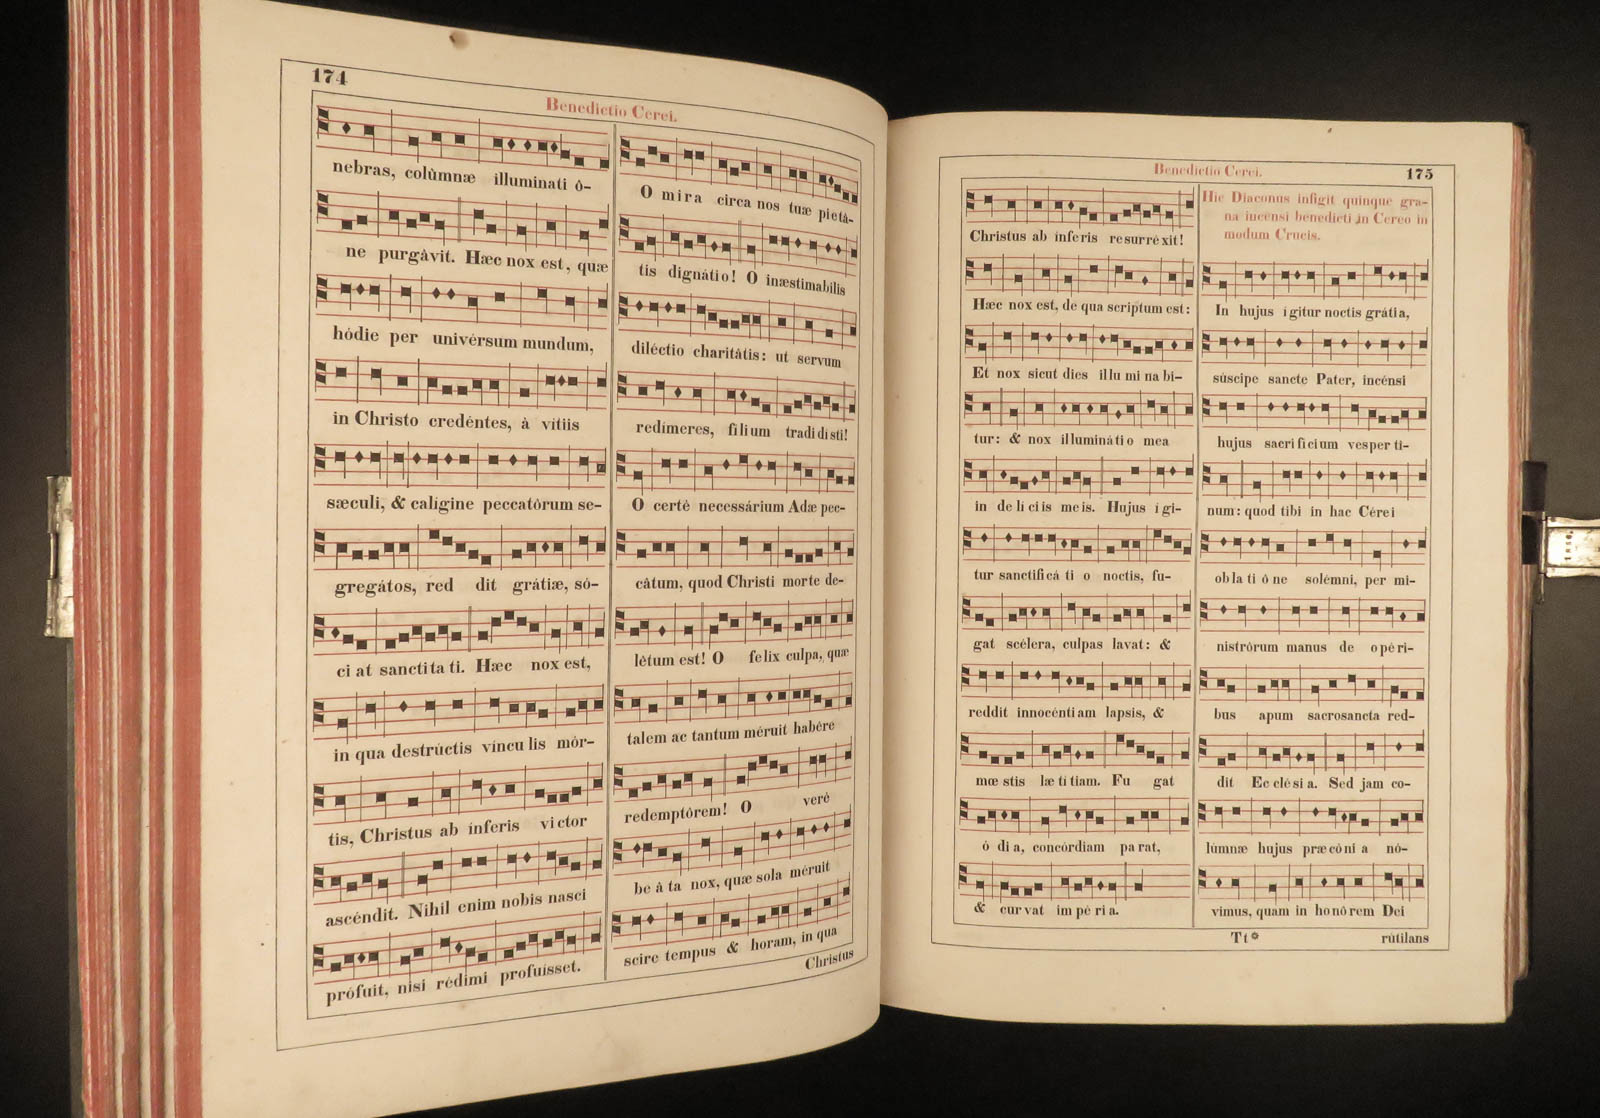 174
Benedictio Cerei.
nebras, colùmnæ illuminati ó-
ne purgâvit. Hæc nox est, quæ
hódie per univérsum mundum,
in Christo credéntes, à vítiis
sæculi, & calígine peccatôrum se-
gregátos, red dit grátiæ, só-
ci at sanctita ti. Hæc nox est,
in qua destrúctis víncu lis mór-
tis, Christus ab ínferis victor
ascéndit. Nihil enim nobis nasci
prófuit, nisi rédimi profuísset.
O mira circa nos tuæ pietá-
tis dignátio! O inæstimabílis
diléctio charitátis: ut servum
redímeres, fílium tradidisti!
O certè necessárium Adæ pec-
câtum, quod Christi morte de-
lêtum est! O felix culpa, quæ
talem ac tantum méruit habére
redemptórem! O veré
be á ta nox, quæ sola méruit
scire tempus & horam, in qua
Christus
Benedictio Cerei.
175
Christus ab ínferis resurréxit!
Hæc nox est, de qua scriptum est:
Et nox sicut dies illu mi na bi-
tur: & nox illuminátio mea
in delíciis meis. Hujus ígi-
tur sanctificá ti o noctis, fu-
gat scélera, culpas lavat: &
reddit innocéntiam lapsis, &
mœ stis læ tí tiam. Fu gat
ó di a, concórdiam pa rat,
& cur vat impéria.
Hic Diaconus infigit quinque gra-
na incensi benedicti in Cereo in
modum Crucis.
In hujus ígitur noctis grátia,
súscipe sancte Pater, incénsi
hujus sacrifícium vesperti-
num: quod tibi in hac Cérei
oblatióne solémni, per mi-
nistrórum manus de opéri-
bus apum sacrosancta red-
dit Ecclésia. Sed jam co-
lúmnæ hujus præcónia nó-
vimus, quam in honórem Dei
Tt*
rútilans
1850.